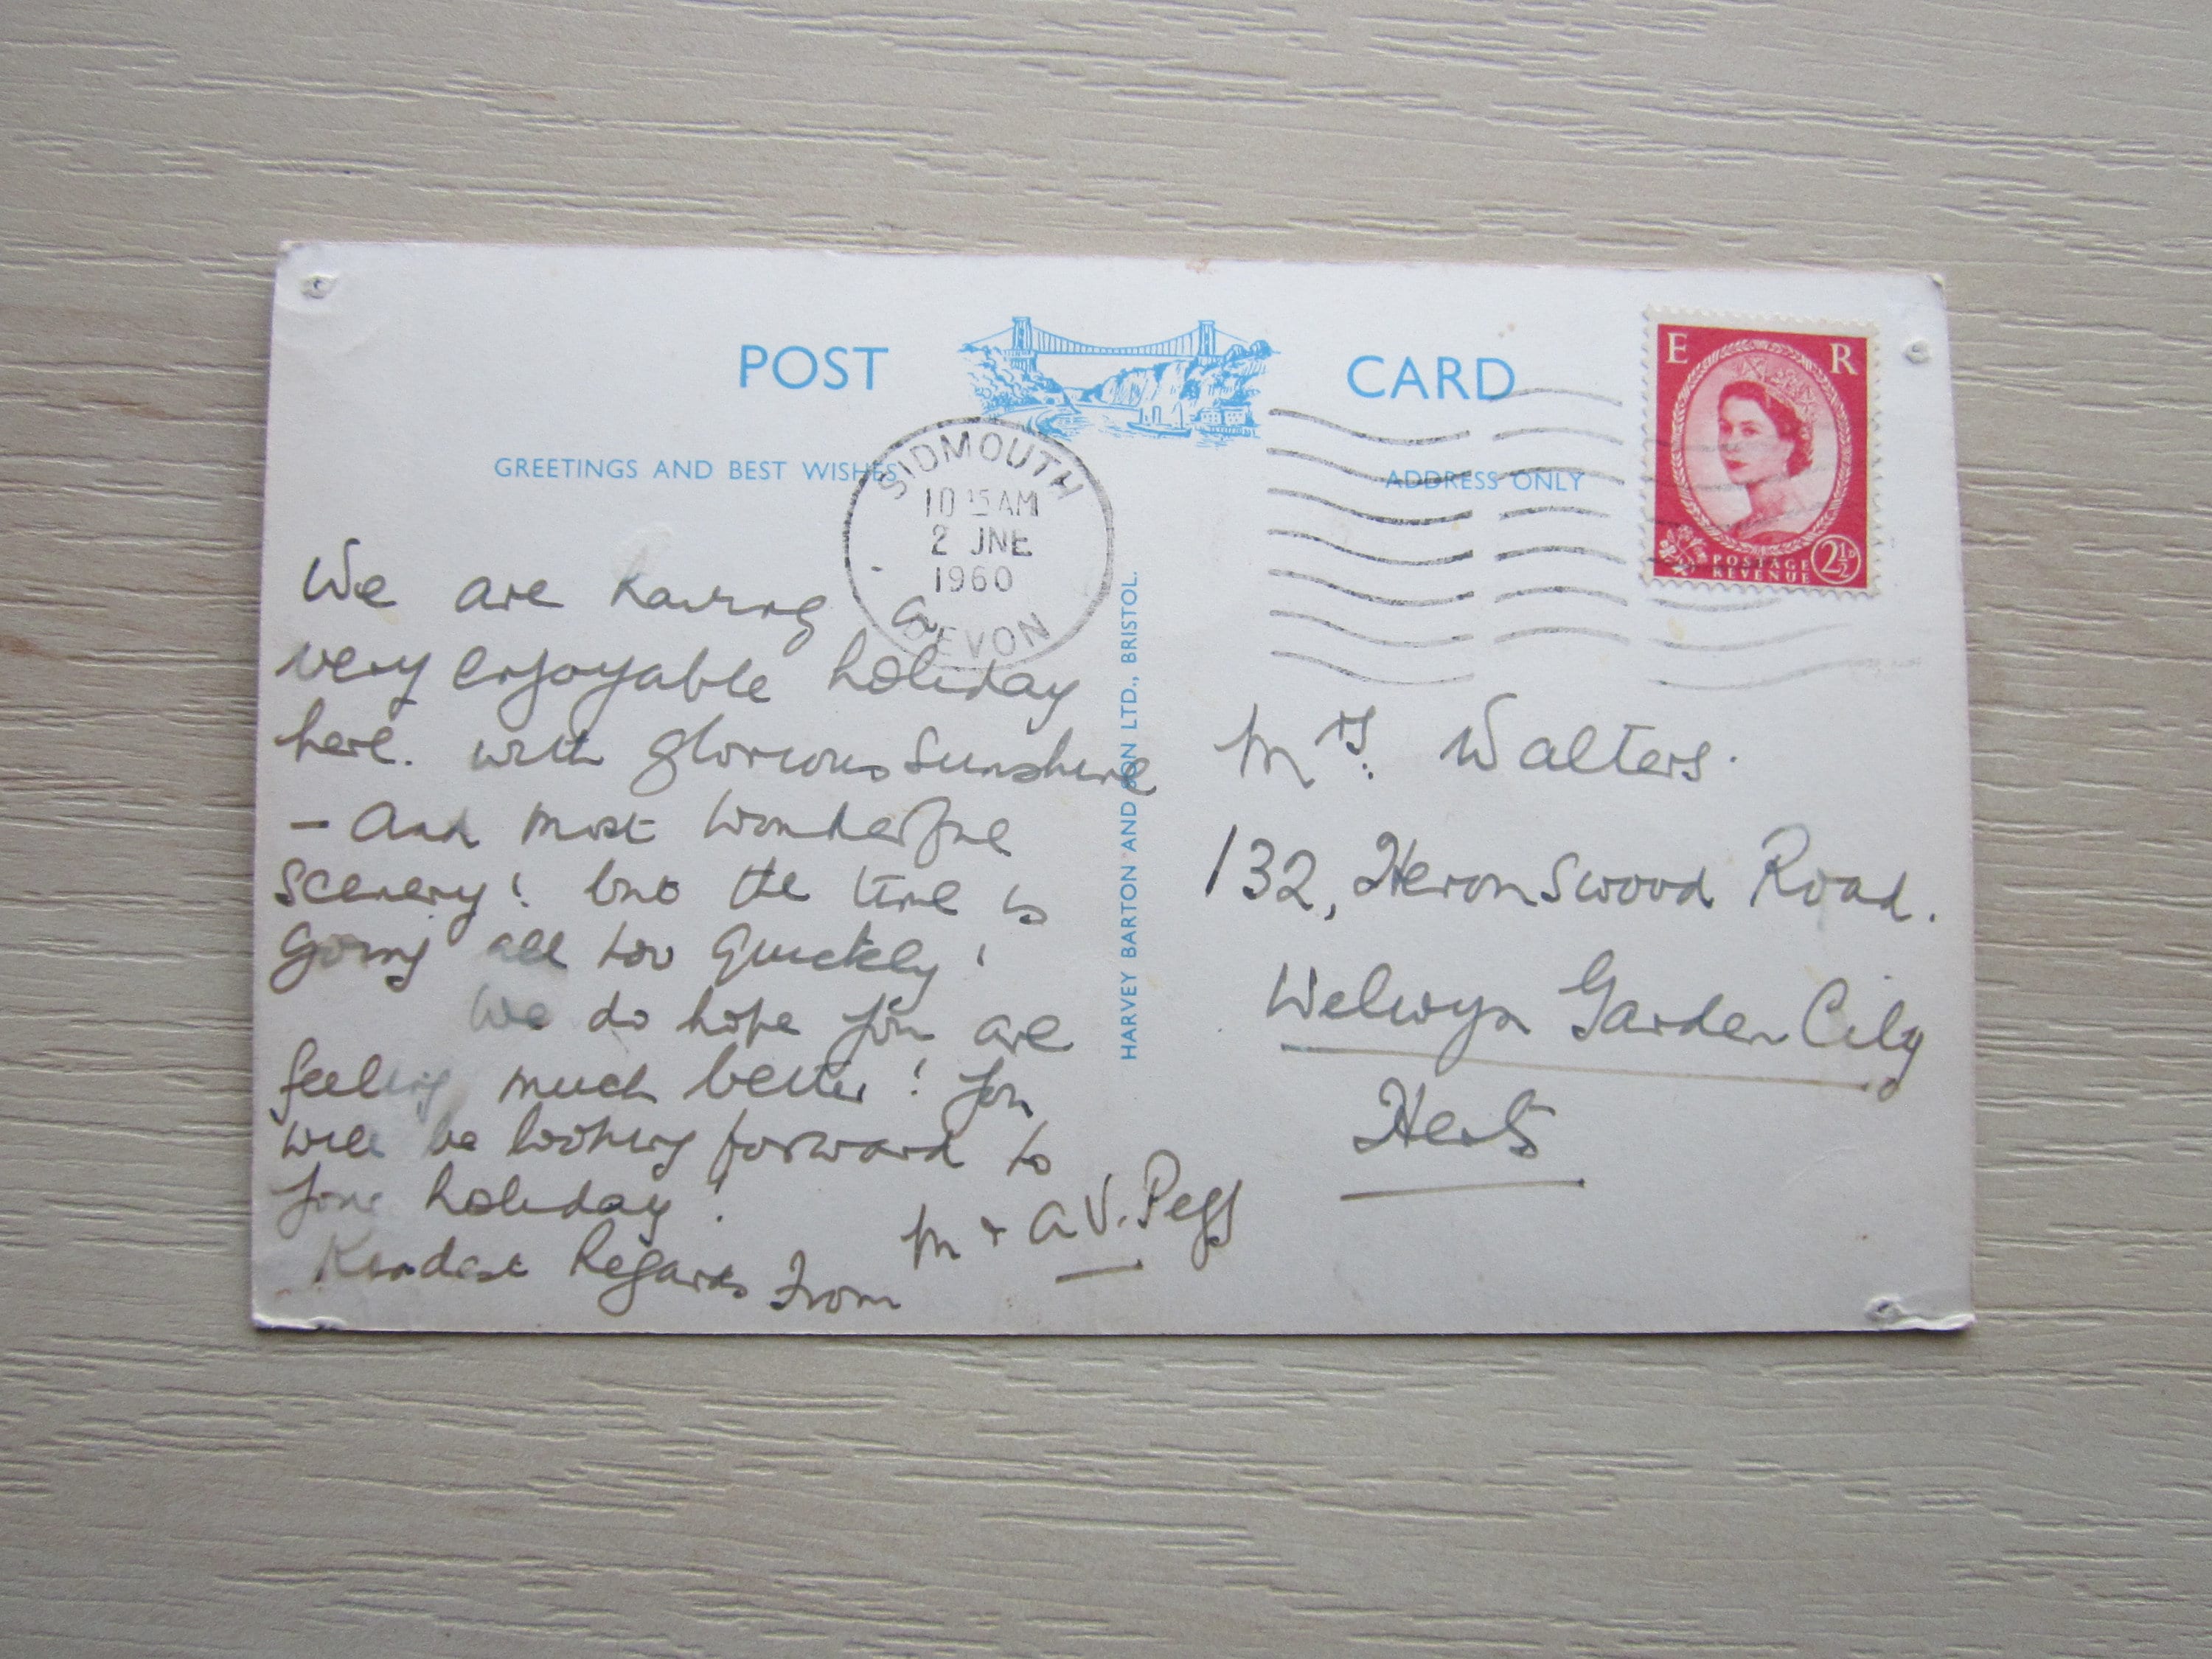 POST CARD
GREETINGS AND BEST WISHES
ADDRESS ONLY
E R
POSTAGE
REVENUE
2½D
SIDMOUTH
10 15 AM
2 JNE
1960
DEVON
HARVEY BARTON AND SON LTD., BRISTOL.
We are having a
very enjoyable holiday
here. with glorious Sunshine
- And most wonderful
Scenery! but the time is
going all too quickly!
We do hope you are
feeling much better! You
will be looking forward to
your holiday!
Kindest Regards From
M + A V. Pegg
Mrs. Walters.
132, Heronswood Road.
Welwyn Garden City
Herts